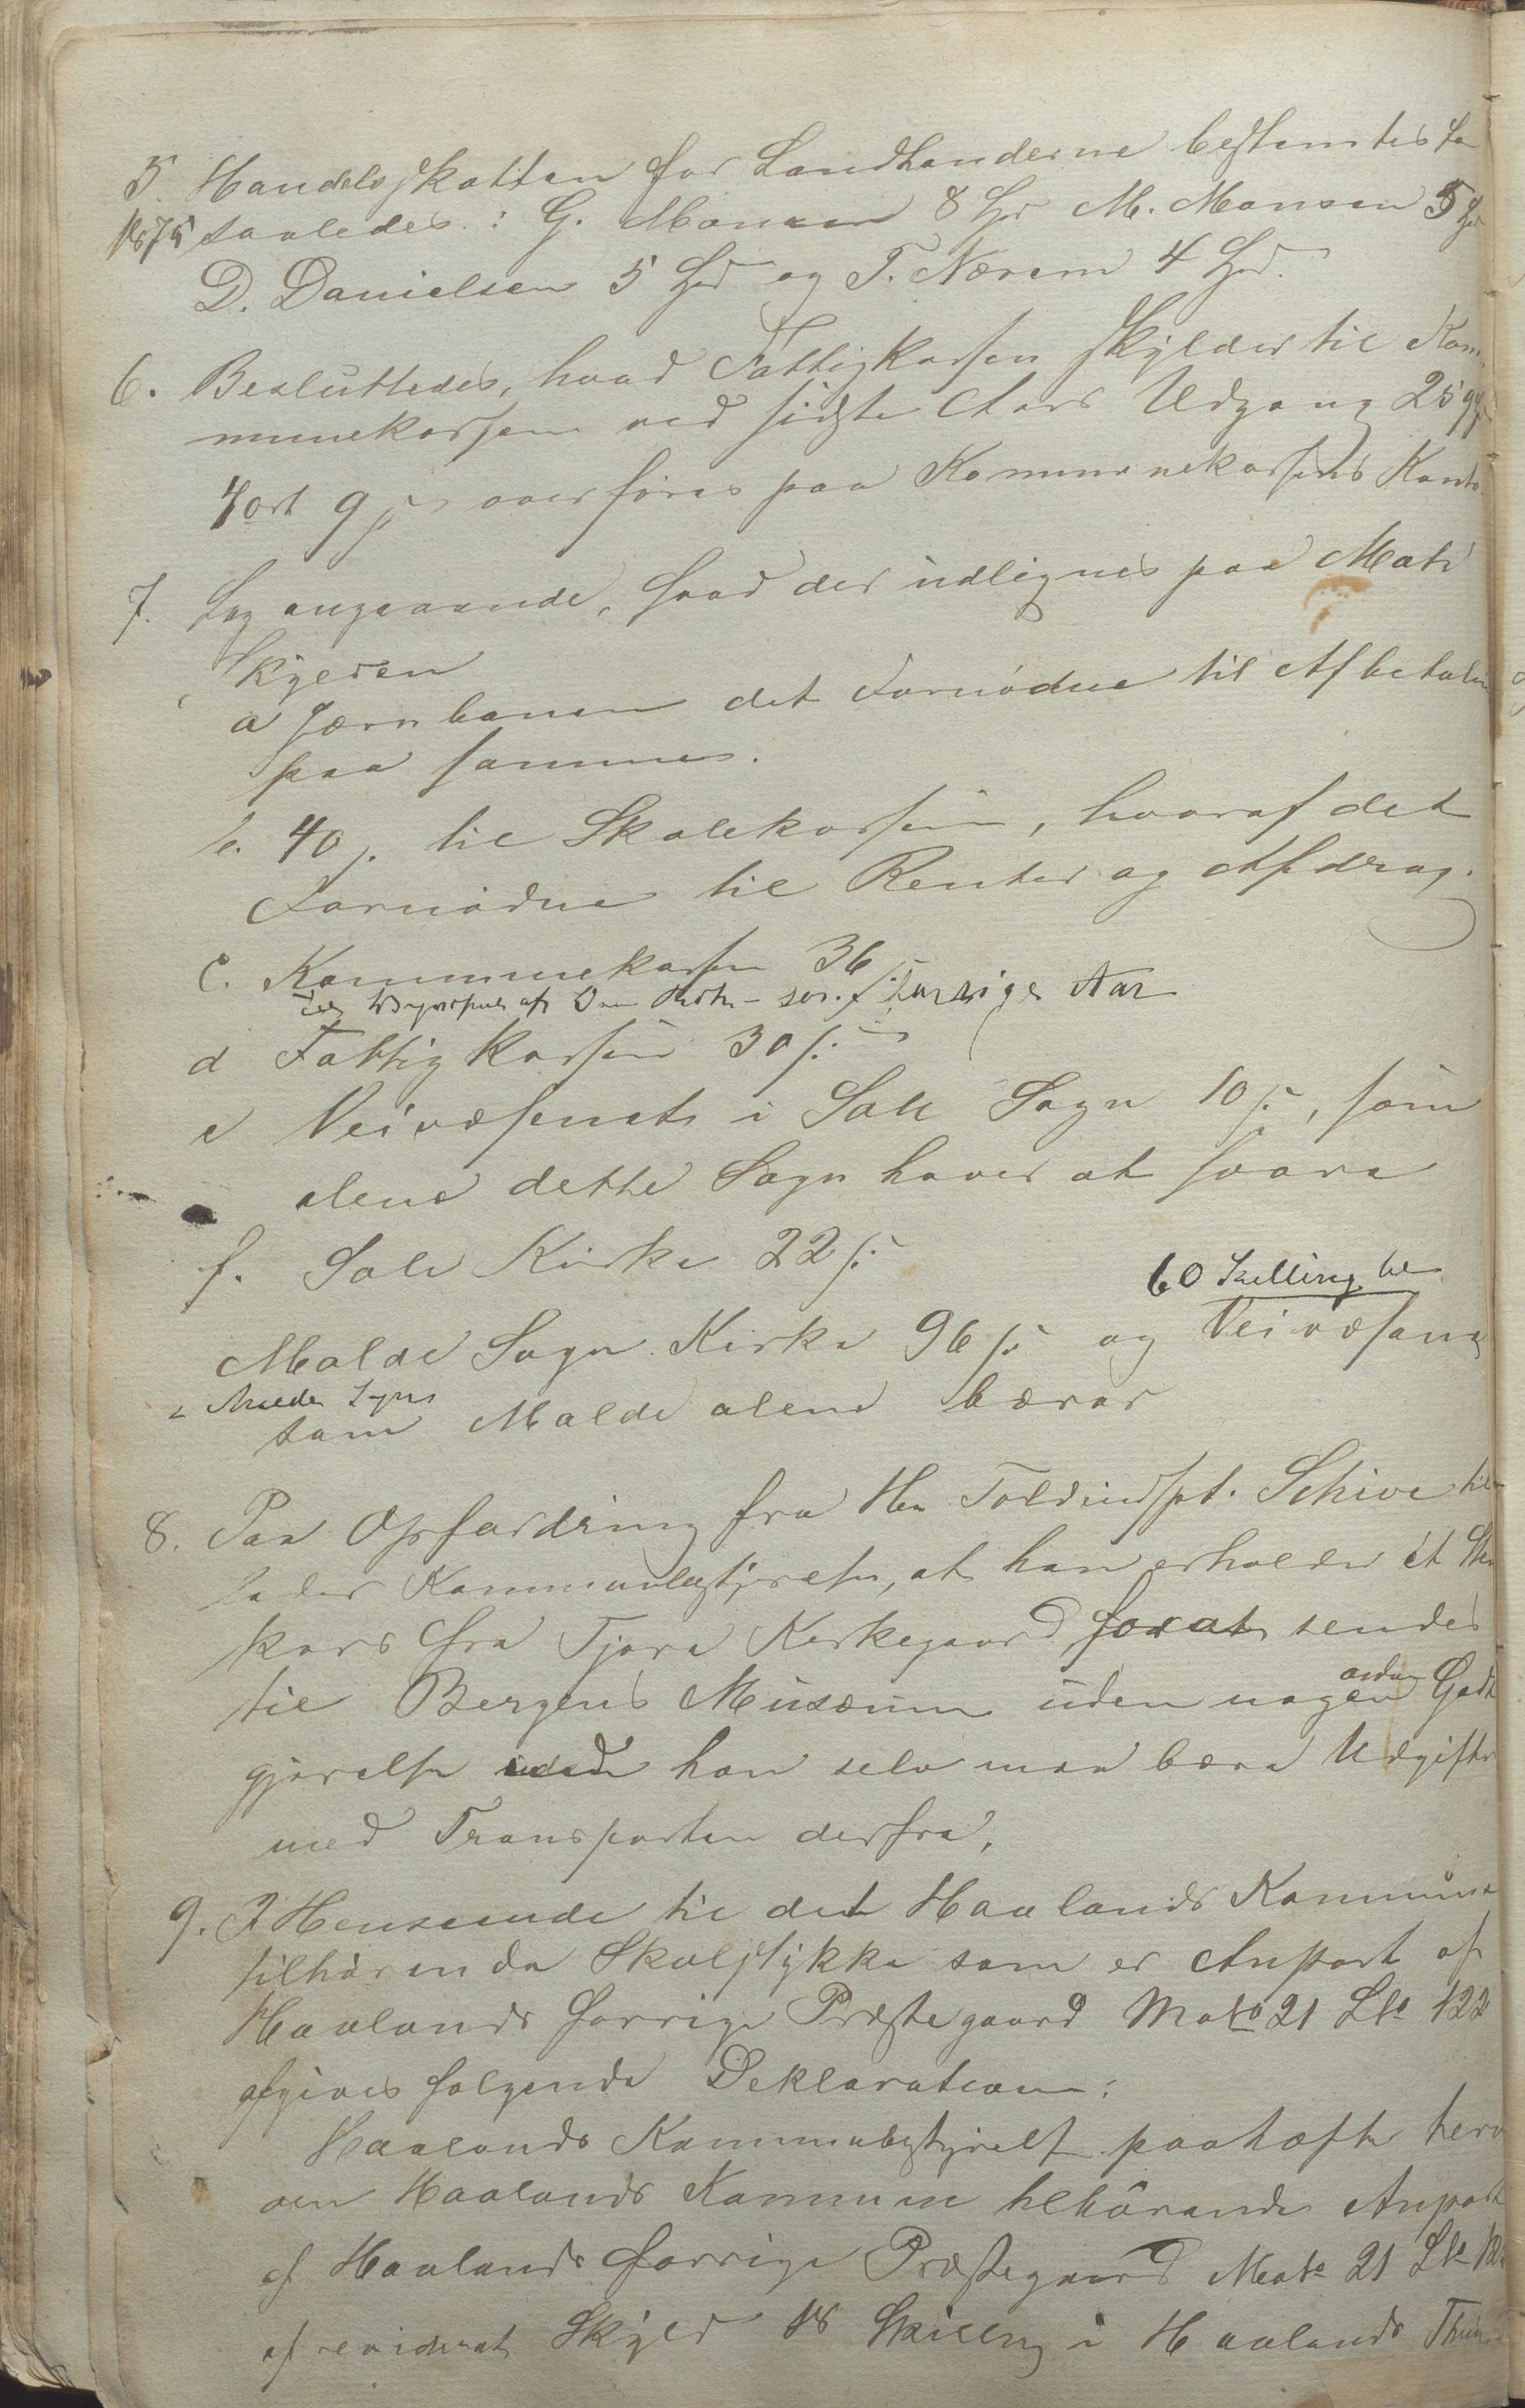 5. Handelsskatten for Landhanderne bestemtes for
1875 saaledes: G. Monsen 8 Spd M. Monsen 5 Spd
D. Danielsen 5 Spd og T. Nærem 4 Spd.
6. Besluttedes, hvad Fattigkassen skylder til Kom-
munekassen ved sidste Aars Udgang 259 Spd
4 ort 9 s overføres paa Kommunekassens Konto.
7. Sag angaaende, hvad der udlignes paa Matr
Skylden
a Jernbanen det Fornødne til Afbetaling
paa samme.
b. 40 s. til Skolekassen, hvoraf det
Fornødne til Renter og Afdrag.
c. Kommunekassen 36 s.
som forrige Aar
d Fattigkassen 30 s.
e Veivæsenet i Sole Sogn 10 s., som
alene dette Sogn haver at svare
f. Sole Kirke 22 s.
60 Skilling til
Malde Sogn Kirke 96 s. og Veivæsenet
i Malde Sogn
som Malde alene bærer
8. Paa Opfordring fra Hr Toldinspt. Schive til-
lader Kommunebestyrelsen, at han erholder et Sten
kors fra Tjora Kirkegaard for at sendes
til Bergens Musæum uden nogen anden Godt
gjørelse end han selv maa bære Udgifter
med Transporten derfra.
9. I Henseende til det Haalands Kommune
tilhørende Skolestykke som er Anpart af
Haalands forrige Præstegaard Mats 21 Lb 122
afgives følgende Deklaration:
Haalands Kommunebestyrelse paahæfte herved
den Haalands Kommune tilhørende Anpart
af Haalands forrige Præstegaard Mats 21 Lb 122
af revideret Skyld 18 Skilling i Haalands